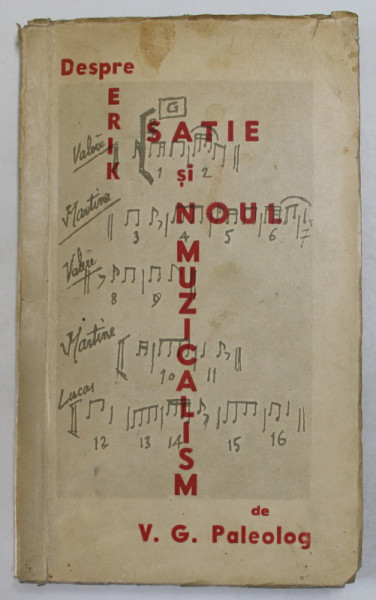 Despre
ERIK
SATIE
și
NOUL
MUZICALISM
G
Valère
1 2
Martine
3 4 5 6 7
Valère
8 9
Martine
10 11
Lucas
12 13 14 15 16
de
V. G. Paleolog